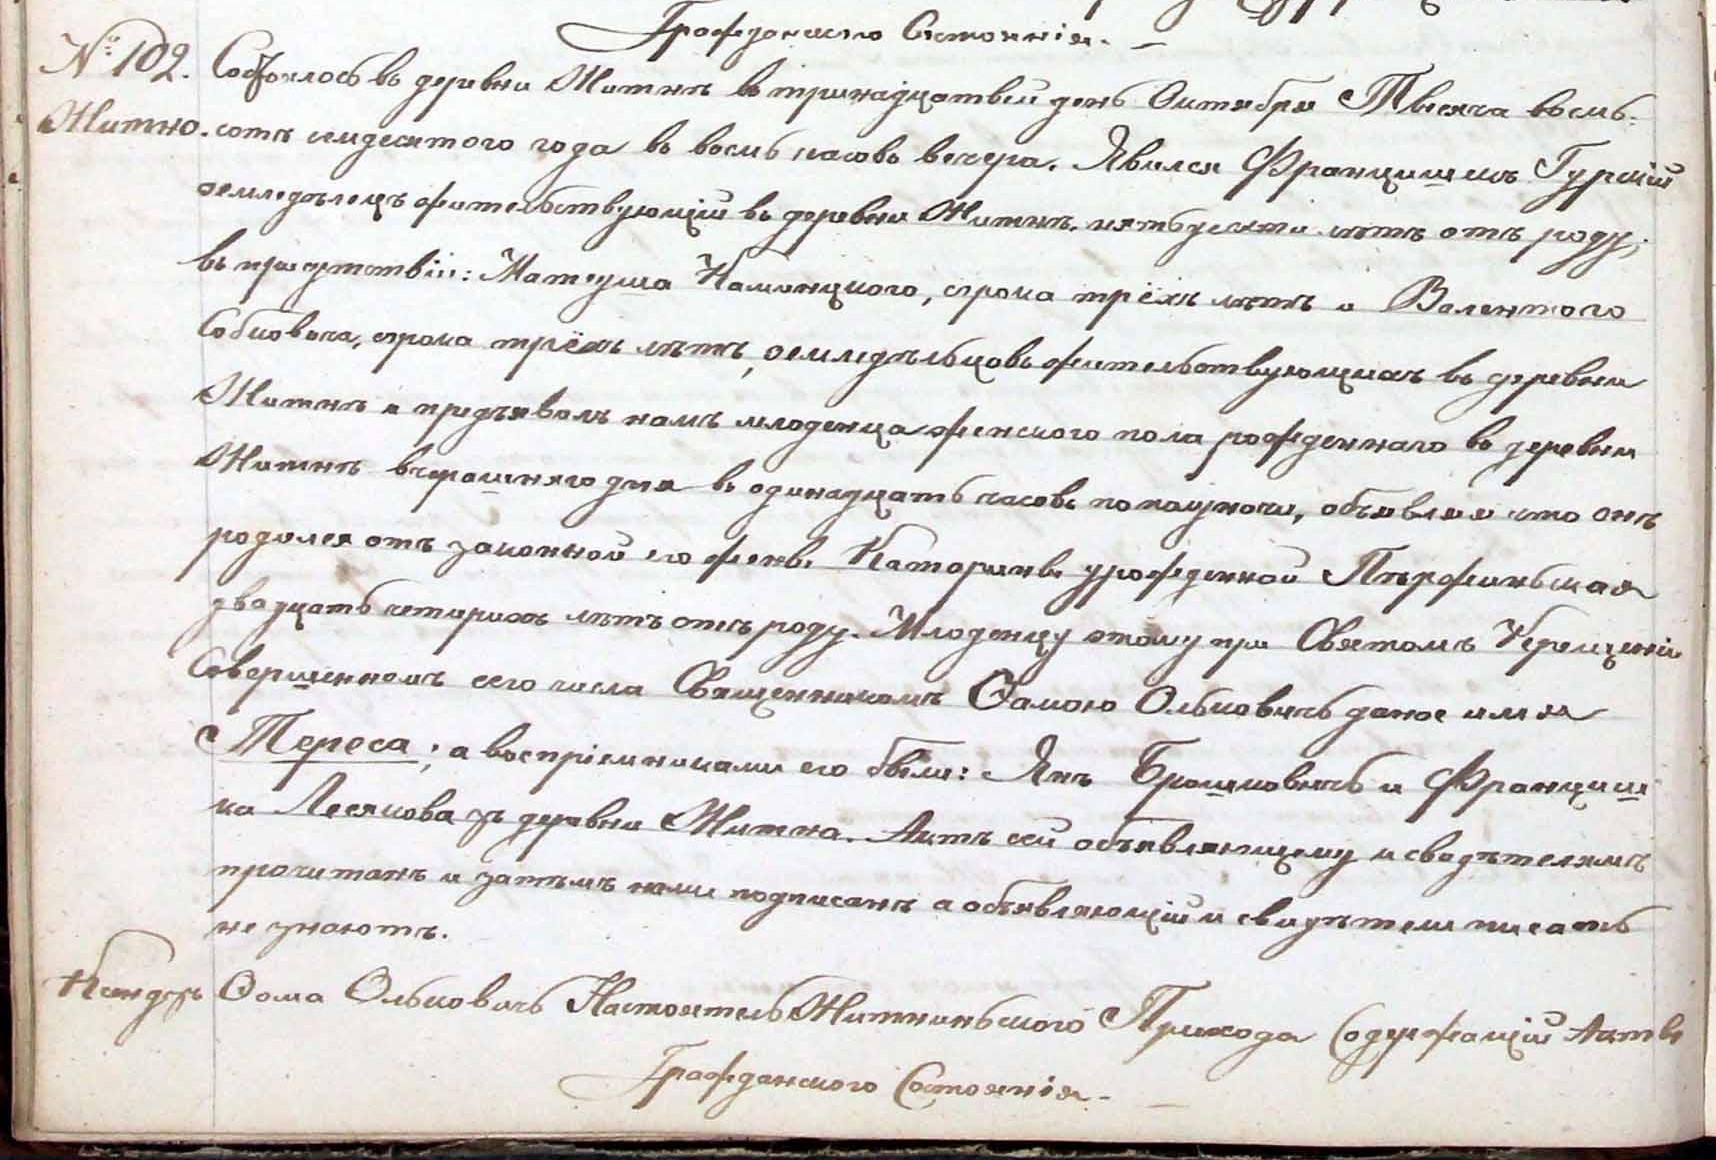 Гражданскаго Состоянія. —
№ 102. Состоялось въ деревни Житнѣ въ тринадцатый день Октября Тысяча восмь-
Житно. сотъ семдесятого года въ восмь часовъ вечера. Явился Францишекъ Гурскій
земледѣлецъ жительствующій въ деревни Житнѣ, пятьдесяти лѣтъ отъ роду;
въ присутствіи: Матеуша Каменцкого, сорока трёхъ лѣтъ и Валентого
сорока трёхъ лѣтъ, земледѣльцовъ жительствующихъ въ деревни
Житнѣ и предъявилъ намъ младенца женского пола рожденнаго въ деревни
Житнѣ вчерашняго дня въ одинадцать часовъ по полуночи, объявляя что онъ
родился отъ законной его жены Катарины урожденной
двадцать четырохъ лѣтъ отъ роду. Младенцу этому при Святомъ Крещеніи
Совершеннемъ сего числа Священникомъ Ѳомою Ольковичъ даное имя
Тереса; а воспріемниками его были: Янъ и Францишъ
ка Лесякова зъ деревни Житна. Актъ сей объявляющему и свидѣтелямъ
прочитанъ и затѣмъ нами подписанъ а объявляющій и свидѣтели писать
не знаютъ.
Ксендзъ Ѳома Ольковичъ Настоятель Житниньского Прихода Содержащій Акты
Гражданского Состоянія. —